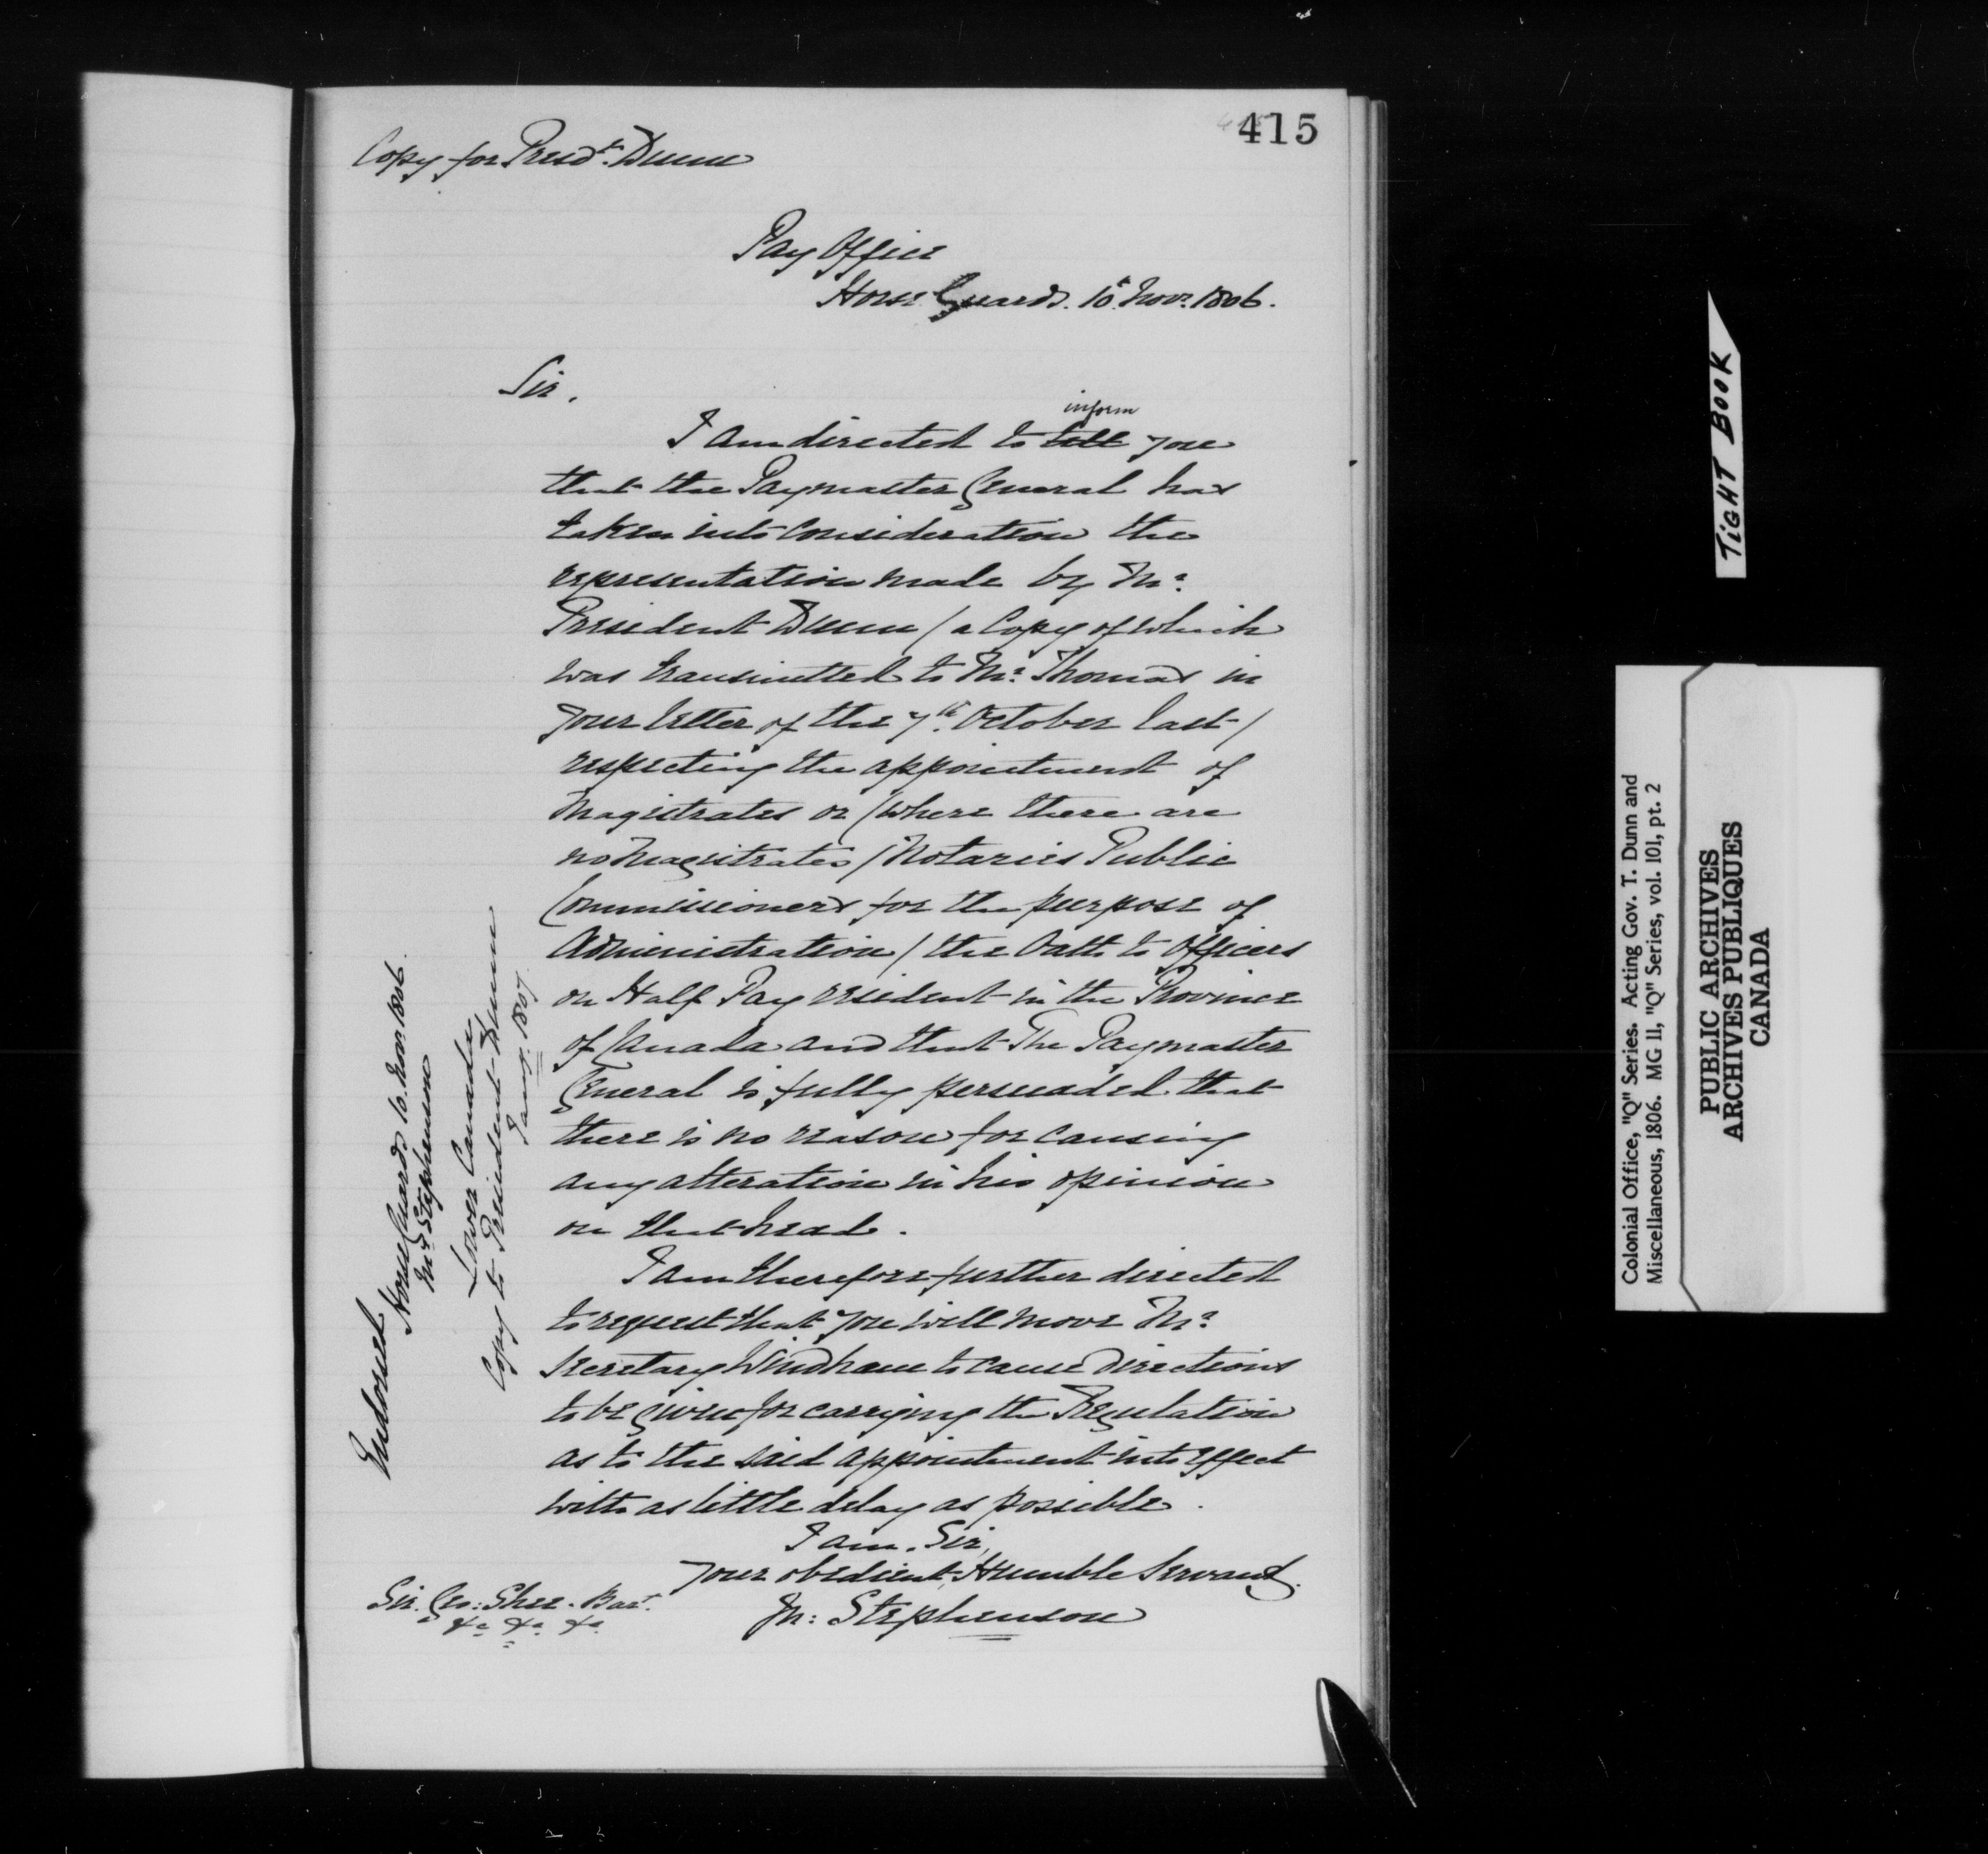 415
Copy for Presdt. Dunn
Pay Office
Horse Guards. 10th Novr. 1806.
Sir,
inform
I am directed to tell you
that the Paymaster General has
taken into consideration the
representation made by Mr.
President Dunn (a Copy of which
was transmitted to Mr. Thomas in
your letter of the 7th October last)
respecting the appointment of
Magistrates or (where there are
no Magistrates) Notaries Public
Commissioners for the purpose of
Administration / the Oath to Officers
on Half Pay resident in the Province
of Canada and that The Paymaster
General is fully persuaded that
there is no reason for causing
any alteration in his opinion
on that head.
I am therefore further directed
to request that you will move Mr.
Secretary Windham to cause directions
to be given for carrying the Regulation
as to the said appointment into effect
with as little delay as possible.
I am, Sir,
Your obedient, Humble Servant.
Jn: Stephenson
Sir. Geo: Shee. Bart.
&c &c &c
Endorsed
Horse Guards 10. Nov. 1806.
Mr. Stephenson
Lower Canada
Copy to President Dunn
Jany. 1807
TIGHT BOOK
Colonial Office, "Q" Series. Acting Gov. T. Dunn and
Miscellaneous, 1806. MG 11, "Q" Series, vol. 101, pt. 2
PUBLIC ARCHIVES
ARCHIVES PUBLIQUES
CANADA